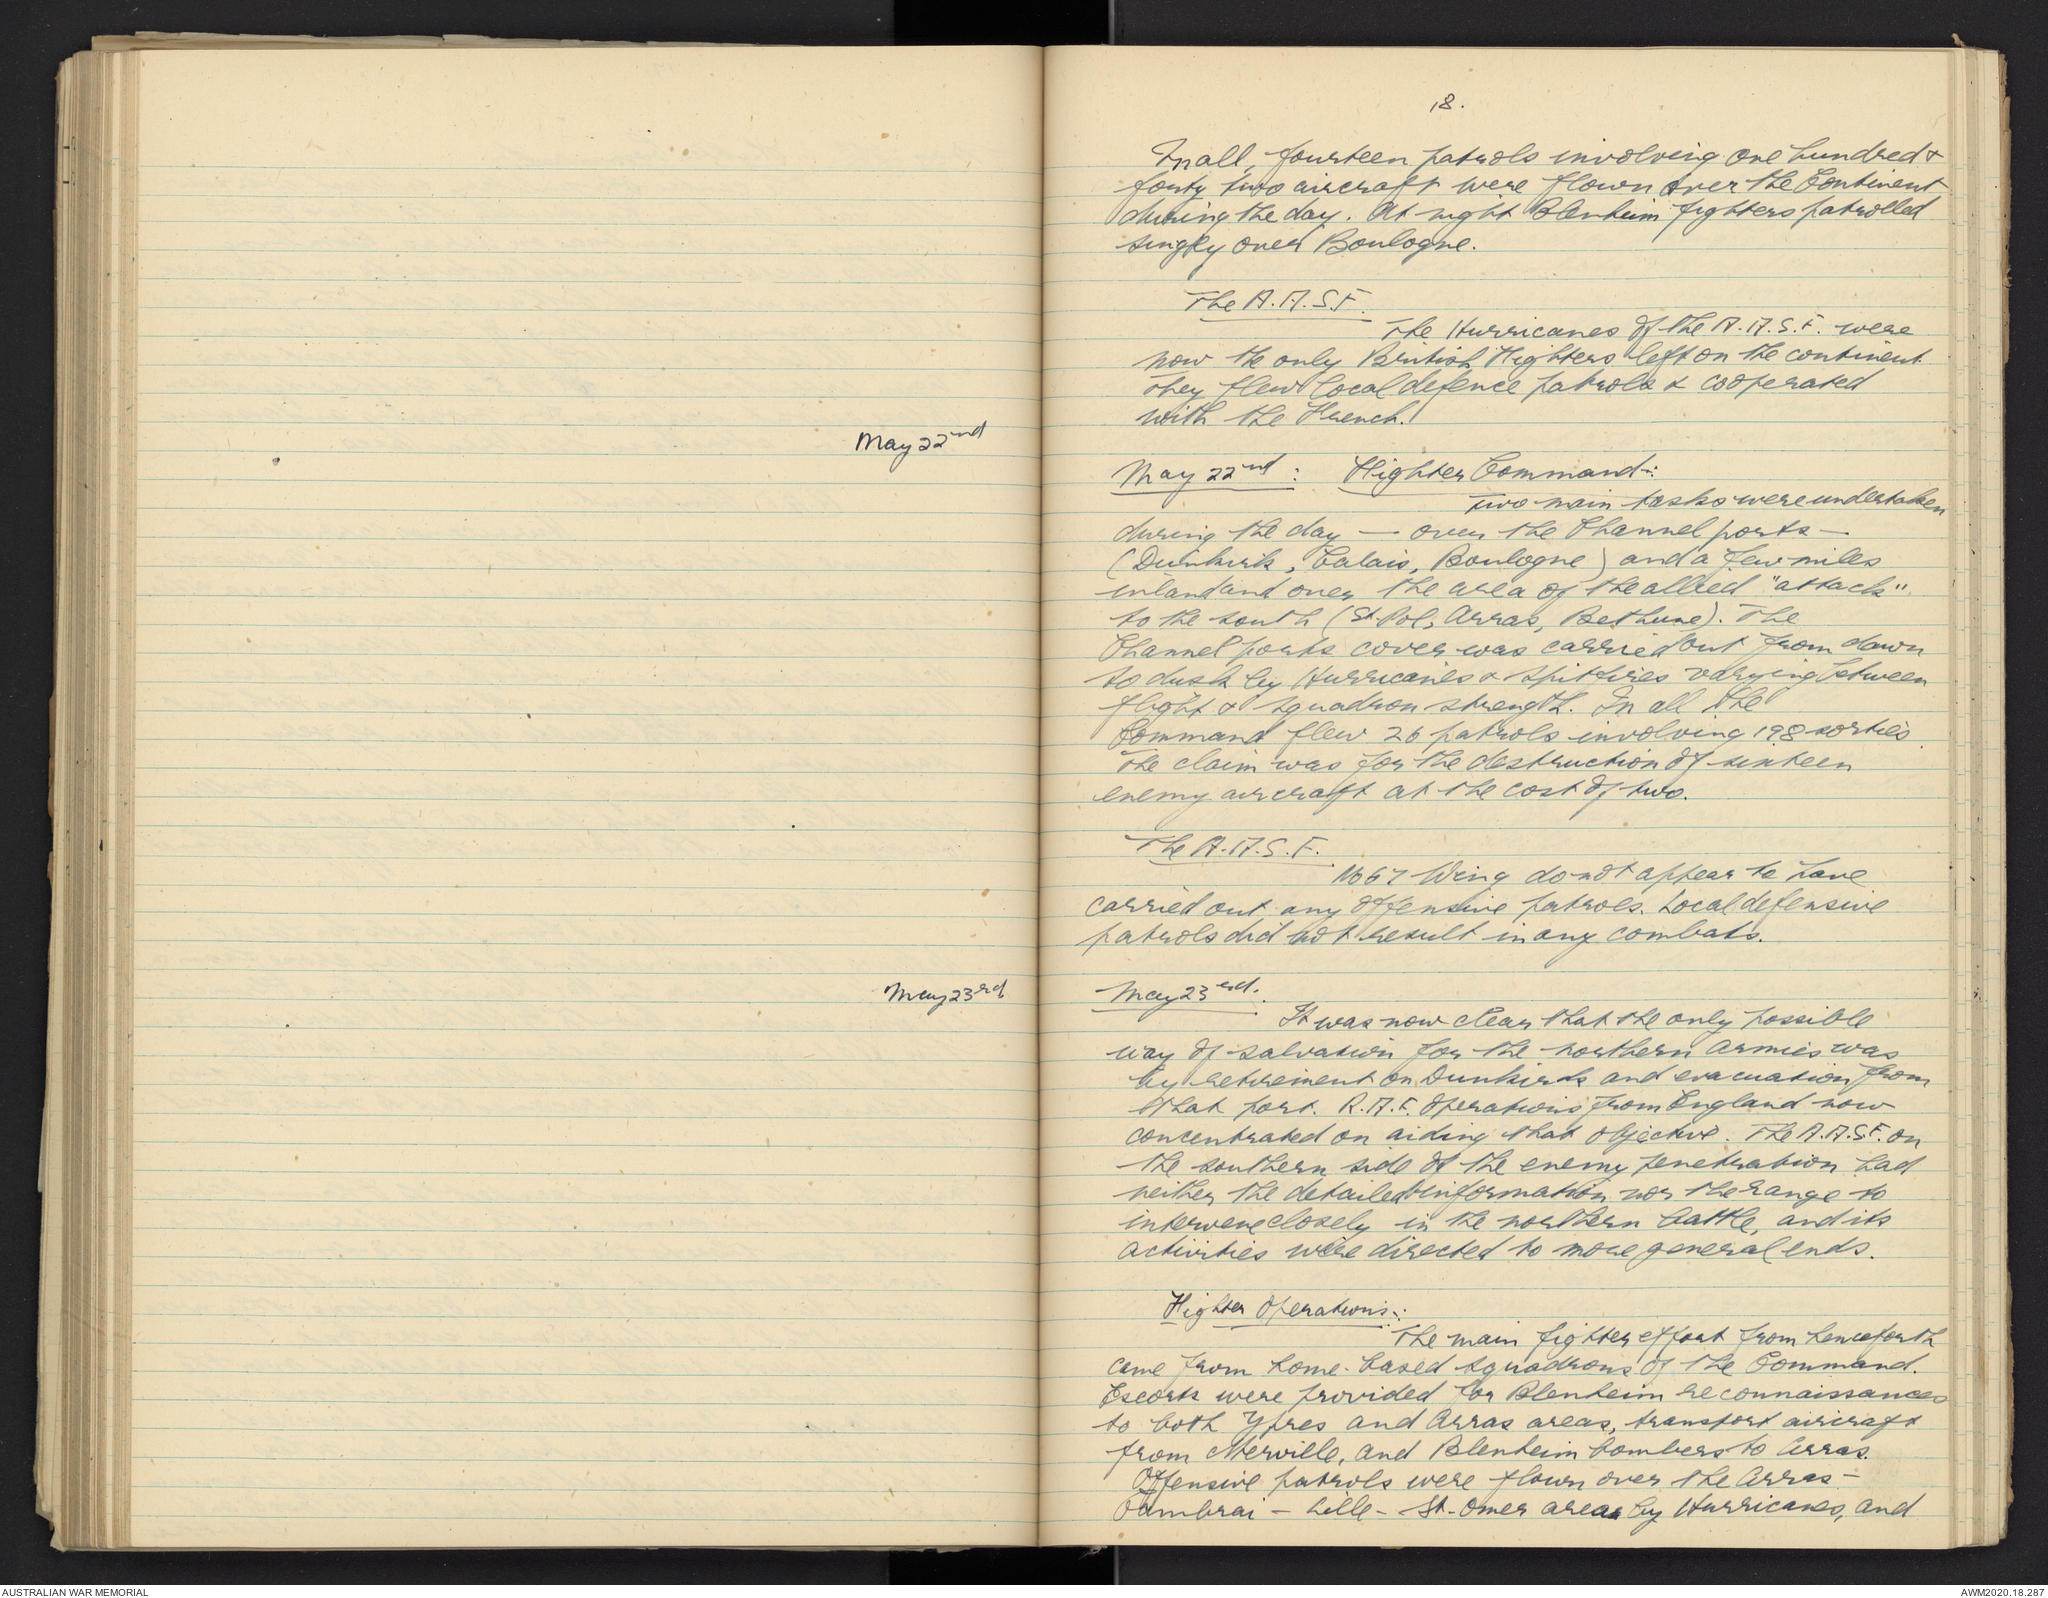 May 22nd
May 23rd
18.
In all, fourteen patrols involving one hundred &
forty two aircraft were flown over the Continent
during the day. At night Blenheim fighters patrolled
singly over Boulogne.
The A.A.S.F.
The Hurricanes of the A.A.S.F. were
now the only British Fighters left on the continent.
They flew local defence patrols & cooperated
with the French.
May 22nd: Fighter Command:-
Two main tasks were undertaken
during the day — over the Channel ports —
(Dunkirk, Calais, Boulogne) and a few miles
inland and over the area of the allied "attack"
to the south (St. Pol, Arras, Bethune). The
Channel ports cover was carried out from dawn
to dusk by Hurricanes & Spitfires varying between
flight & squadron strength. In all the
Command flew 26 patrols involving 198 sorties.
The claim was for the destruction of sixteen
enemy aircraft at the cost of two.
The A.A.S.F.
No 67 Wing do not appear to have
carried out any offensive patrols. Local defensive
patrols did not result in any combats.
May 23rd.
It was now clear that the only possible
way of salvation for the northern armies was
by retirement on Dunkirk and evacuation from
that port. R.A.F. operations from England now
concentrated on aiding that objective. The A.A.S.F. on
the southern side of the enemy penetration had
neither the detailed information nor the range to
intervene closely in the northern battle, and its
activities were directed to more general ends.
Fighter Operations:-
The main fighter effort from henceforth
came from home-based squadrons of the Command.
Escorts were provided for Blenheim reconnaissances
to both Ypres and Arras areas, transport aircraft
from Merville, and Blenheim bombers to Arras.
Offensive patrols were flown over the Arras -
Cambrai - Lille - St-Omer areas by Hurricanes, and
AUSTRALIAN WAR MEMORIAL
AWM2020.18.287